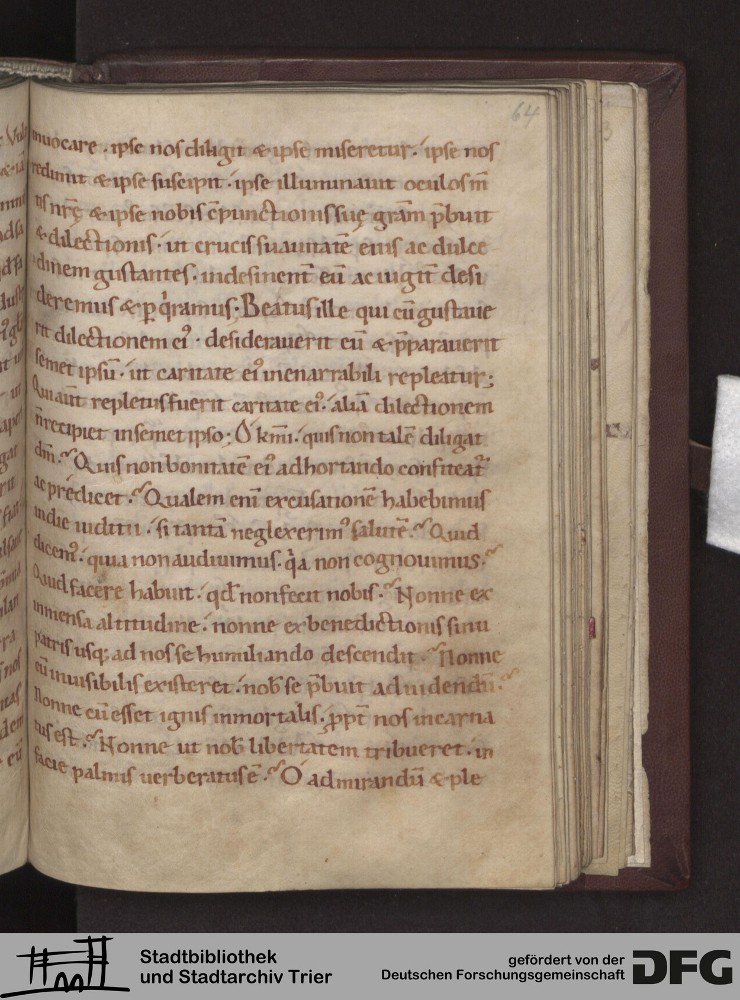 64
inuocare . ipse nos diligit & ipse miseretur . ipse nos
redimit & ipse suscipit . ipse illuminauit oculos m̄
tis nr̄ę & ipse nobis cp̄unctionis suę grām p̄buit
& dilectionis . ut crucis suauitatē eius ac dulce
dinem gustantes . indesinent̄ eū ac iugit̄ desi
deremus & pq̇ramus . Beatus ille qui cū gustaue
rit dilectionem ei᾿ . desiderauerit eū & p̄parauerit
semet ipsū . ut caritate ei᾿ inenarrabili repleatur ;
Qui aūt repletus fuerit caritate ei᾿ . aliā dilectionem
n̄ recipiet in semet ipso ; O kmi . quis non talē diligat
dm̄ . Quis non bonitatē ei᾿ adhortando confiteat᾿
ac predicet . Qualem eni excusationē habebimus
in die iuditii . si tantā neglexerim᾿ salutē . Quid
dicem᾿ . quia non audiuimus . qa non cognouimus .
Quid facere habuit . qd̄ non fecit nobis . Nonne ex
inmensa altitudine . nonne ex benedictionis sinu
patris usq; ad nos se humiliando descendit . Nonne
cū inuisibilis existeret . nob̄ se p̄buit ad uidendū .
Nonne cū esset ignis inmortalis . ppt̄ nos incarna
tus est . Nonne ut nob̄ libertatem tribueret . in
facie palmis uerberatus ē . O admirandū & ple
Stadtbibliothek
und Stadtarchiv Trier
gefördert von der
Deutschen Forschungsgemeinschaft
DFG